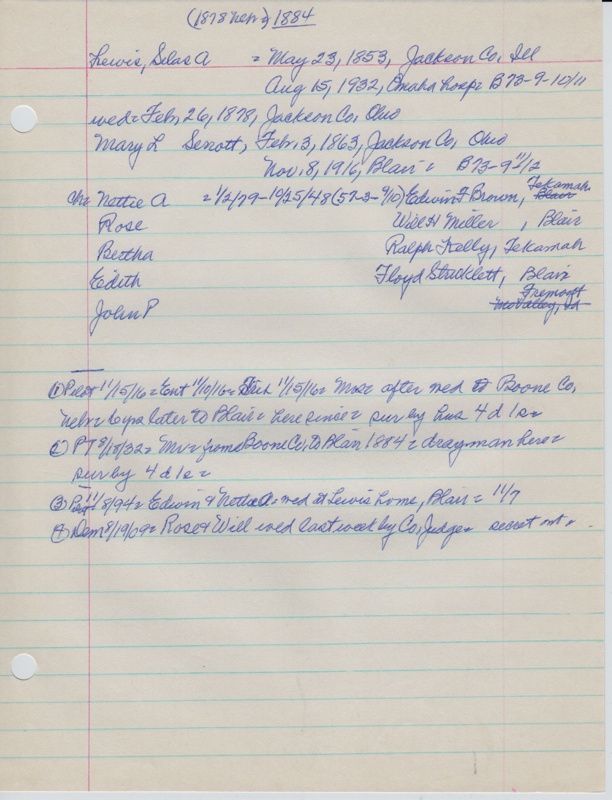 (1878 Nebr) 1884
Lewis, Silas A = May 23, 1853, Jackson Co, Ill
Aug 15, 1932, Omaha hosp = B73-9-10/11
wed = Feb, 26, 1878, Jackson Co, Ohio
Mary L Scott, Feb, 3, 1863, Jackson Co, Ohio
Nov, 8, 1916, Blair = B73-9 11/12
Ch = Nettie A = 1/2/79-10/25/48 (57-3-9/10) Edwin F Brown, Tekamah Blair
Rose Will H Miller, Blair
Bertha Ralph Kelly, Tekamah
Edith Floyd Stricklett, Blair
Fremont
John P Mo Valley, Ia
① Pilot 11/15/16 = Ent 11/10/16 = 11/15/16 = Mrs = after wed to Boone Co,
Nebr = 6 yrs later to Blair = here since = sur by hus 4 d 1 s =
② PT 8/18/32 = Mr = from Boone Co, to Blair 1884 = drayman here =
sur by 4 d 1 s =
③ 11/8/94 = Edwin & Nettie A = wed at Lewis home, Blair = 11/7
④ Dem 8/19/09 = Rose & Will wed last week by Co, Judge = secret out =